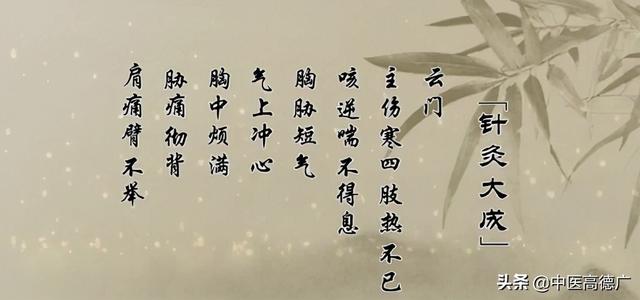 「针灸大成」
云门
主伤寒四肢热不已
咳逆喘不得息
胸胁短气
气上冲心
胸中烦满
胁痛彻背
肩痛臂不举
头条 @中医高德广